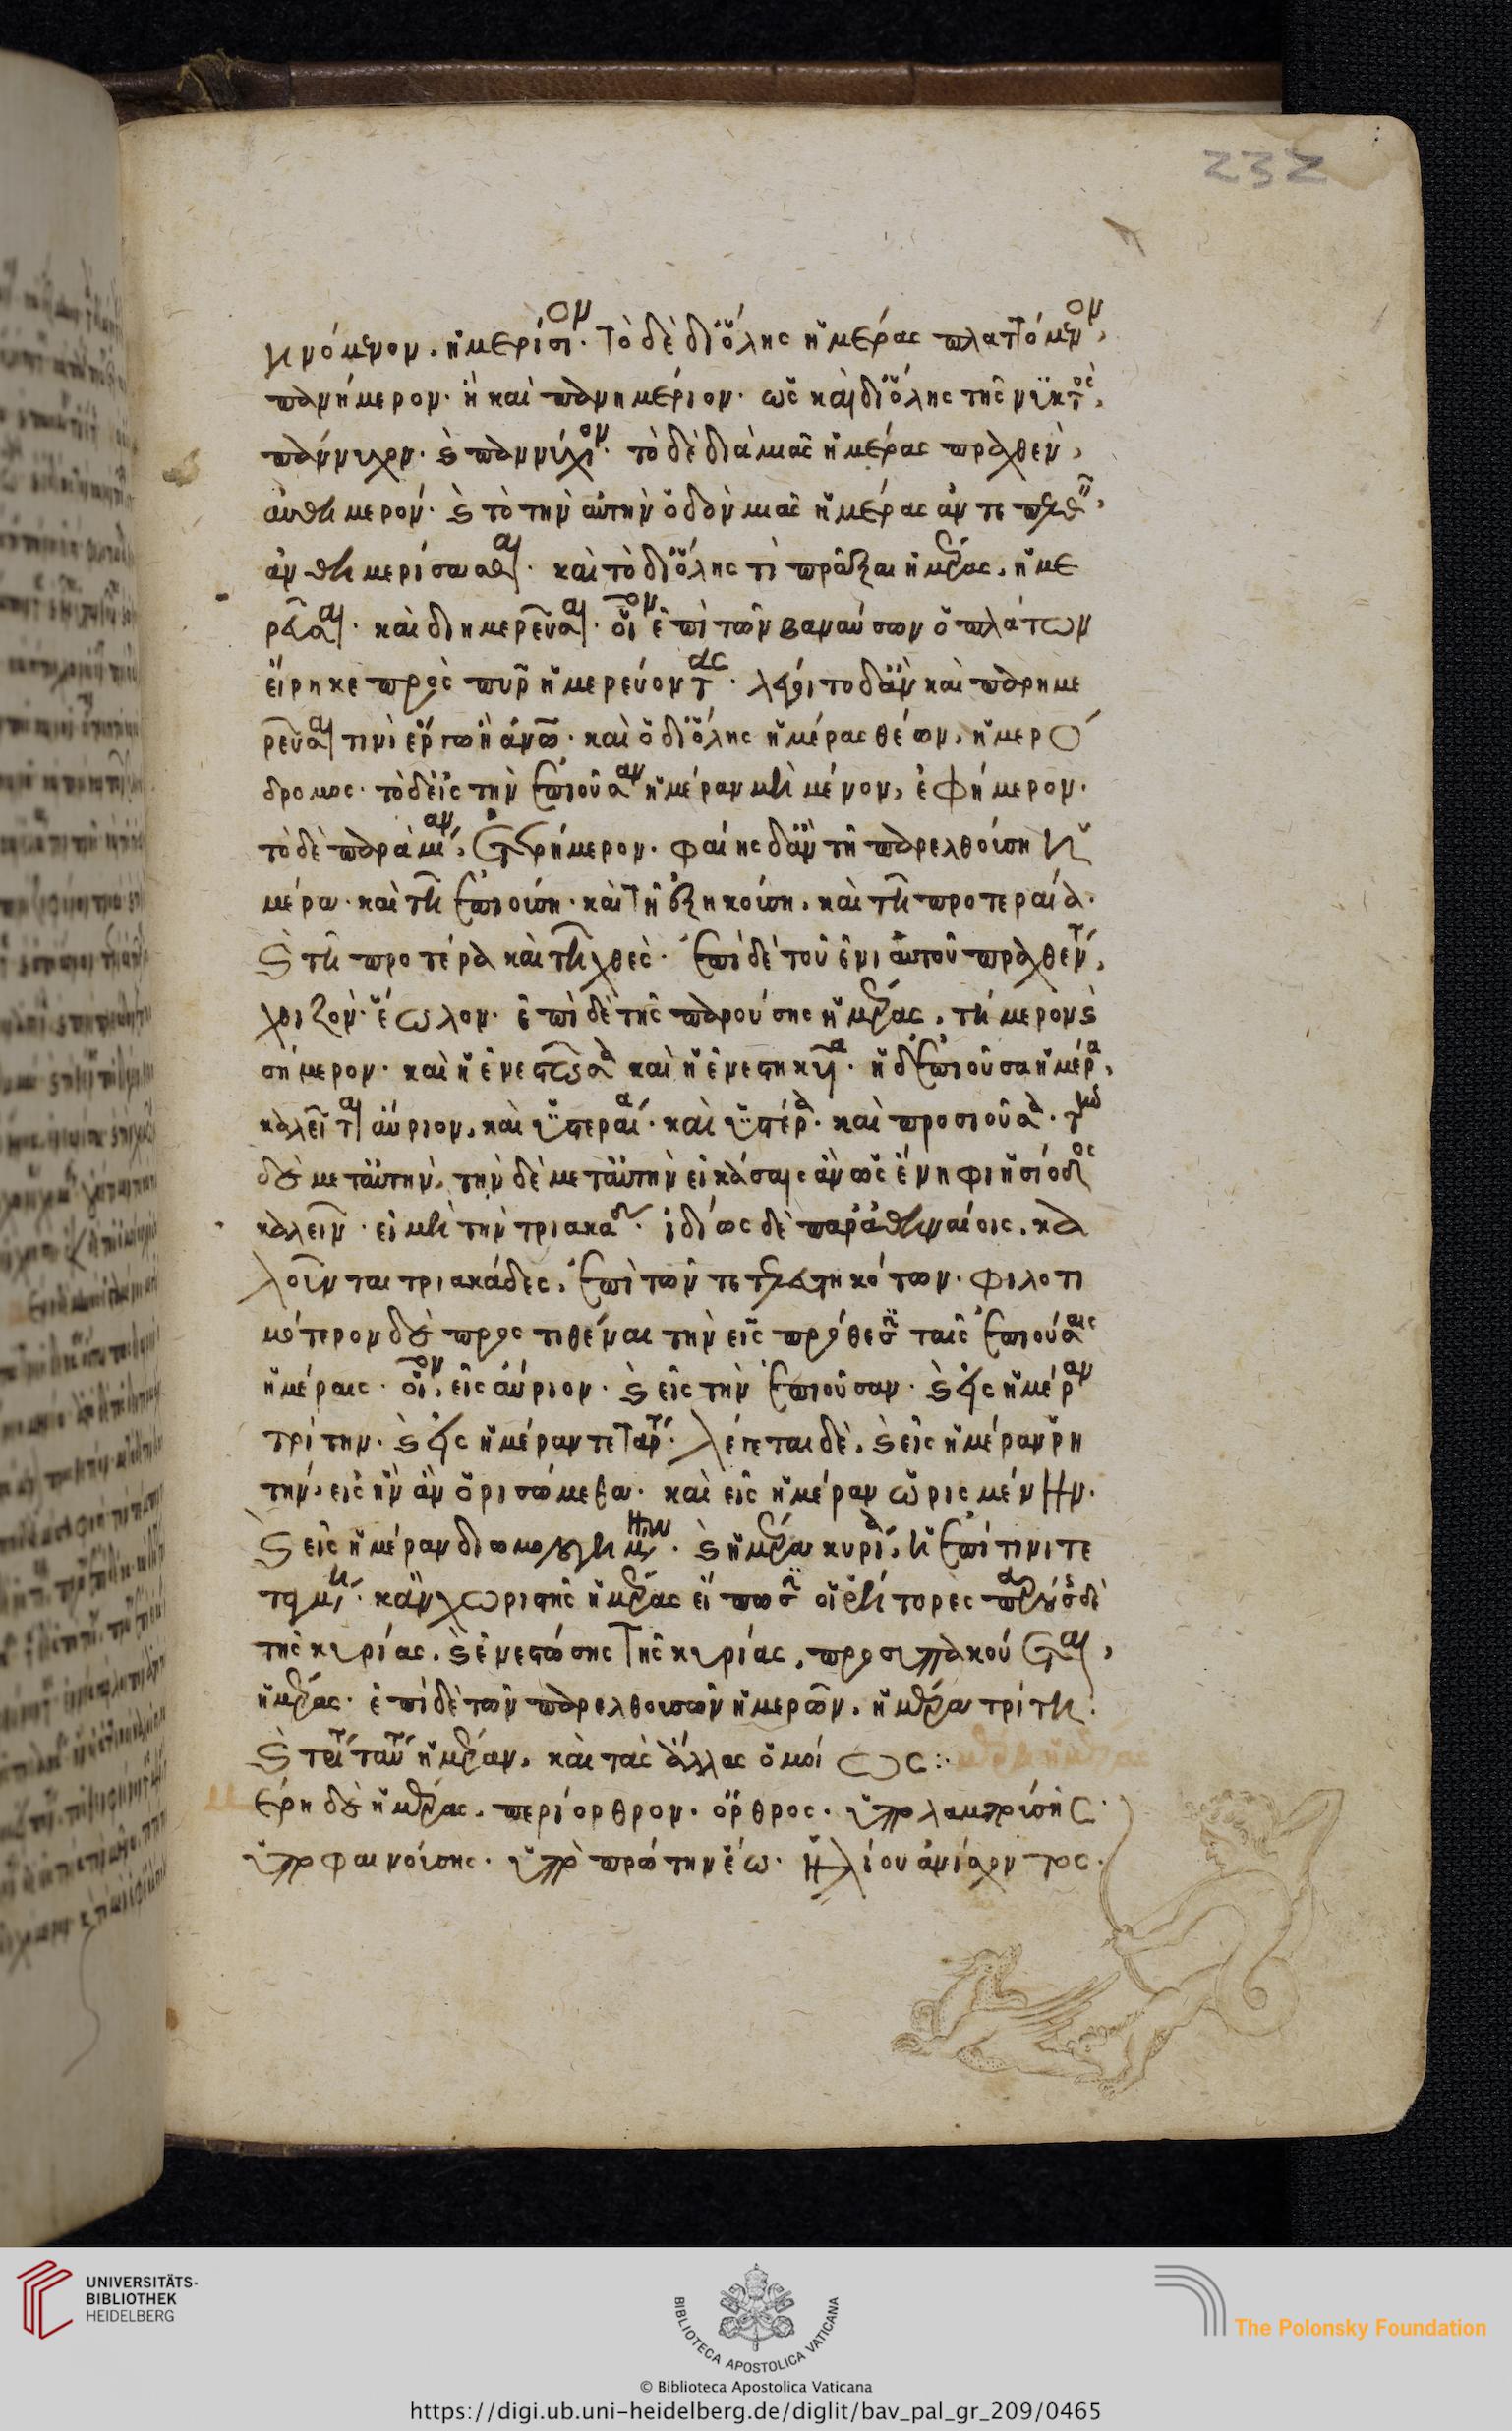 232
γινόμενον. ἡμερίσιον. τὸ δὲ δι' ὅλης ἡμέρας πλαττόμενον,
πανήμερον. ἢ καὶ πανημέριον. ὡς καὶ δι' ὅλης τῆς νυκτός,
πάννυχον. καὶ παννύχιον. τὸ δὲ διὰ μιᾶς ἡμέρας πραχθὲν,
αὐθήμερον. καὶ τὸ τὴν αὐτὴν ὁδὸν μιᾶς ἡμέρας
ἀνθημερίσασθαι. καὶ τὸ δι' ὅλης τὶ πρᾶξαι ἡμέρας, ἡμε
ρεῦσαι. καὶ διημερεῦσαι. οἷον ἐπὶ τῶν βαναύσων ὁ πλάτων
εἴρηκε πρὸς πῦρ ἡμερεύοντας. λέγοιτο δ' ἂν καὶ παρημε
ρεῦσαι τινὶ ἔργω ἢ ἀνω. καὶ ὁ δι' ὅλης ἡμέρας θέων, ἡμερο
δρομος. τὸ δ' εἰς τὴν ἐπιοῦσαν ἡμέραν μὴ μένον, ἐφήμερον.
τὸ δὲ παρὰ μίαν, ἑτερήμερον. φαίης δ' ἂν τῆ παρελθούση ἡ
μέρα. καὶ τῆ ἐπιούση. καὶ τῆ ἐξηκούση. καὶ τῆ προτεραία.
καὶ τῆ προτέρα καὶ τῆ χθές. ἐπὶ δὲ τοῦ ἐν αὐτοῦ πραχθέντος,
χθιζὸν. ἕωλον. ἐπὶ δὲ τῆς παρούσης ἡμέρας, τήμερον καὶ
σήμερον. καὶ ἡ ἐνεστῶσα καὶ ἡ ἐνεστηκυῖα. ἡ δ' ἐπιοῦσα ἡμέρα,
καλεῖται αὔριον, καὶ ὑστεραία. καὶ ὑστέρα. καὶ προσιοῦσα.
μεταύτην, τὴν δὲ μεταύτην εἰκάσαις ἂν ὡς ἔνη φι ἡσίοδος
καλεῖν. εἰ μὴ τὴν τριακάδα. ἰδίως δὲ παρ' ἀθηναίοις, κα
λοῦνται τριακάδες, ἐπὶ τῶν τετελευτηκότων. φιλοτι
μότερον δὲ προστιθέναι τὴν εἰς πρόθεσιν ταῖς ἐπιούσαις
ἡμέραις. οἷον, εἰς αὔριον. καὶ εἰς τὴν ἐπιοῦσαν. καὶ εἰς ἡμέραν
τρίτην. καὶ εἰς ἡμέραν τετάρτην. λέγεται δὲ, καὶ εἰς ἡμέραν ῥη
τήν, εἰς ἣν ἂν ὁρισώμεθα. καὶ εἰς ἡμέραν ὡρισμένην.
καὶ εἰς ἡμέραν διωμολογημένην. καὶ ἡμέρα κυρία, ἢ ἐπί τινι τε
ταγμένη. κἂν χωρὶς τῆς ἡμέρας εἴπωσιν οἱ ῥήτορες
τῆς κυρίας. καὶ ἐνεστώσης τῆς κυρίας, προσυπακούεται,
ἡμέρας. ἐπὶ δὲ τῶν παρελθουσῶν ἡμερῶν, ἡμέρα τρίτη.
καὶ τρίτην ταύτην ἡμέραν, καὶ τὰς ἄλλας ὁμοίως:·
μέρη δὲ ἡμέρας. περίορθρον. ὄρθρος. ὑπολαμπρούσης.
ὑποφαινούσης. ὑπὸ πρώτην ἕω. ἡλίου ἀνίσχοντος.
UNIVERSITÄTS-
BIBLIOTHEK
HEIDELBERG
BIBLIOTECA APOSTOLICA VATICANA
© Biblioteca Apostolica Vaticana
The Polonsky Foundation
https://digi.ub.uni-heidelberg.de/diglit/bav_pal_gr_209/0465